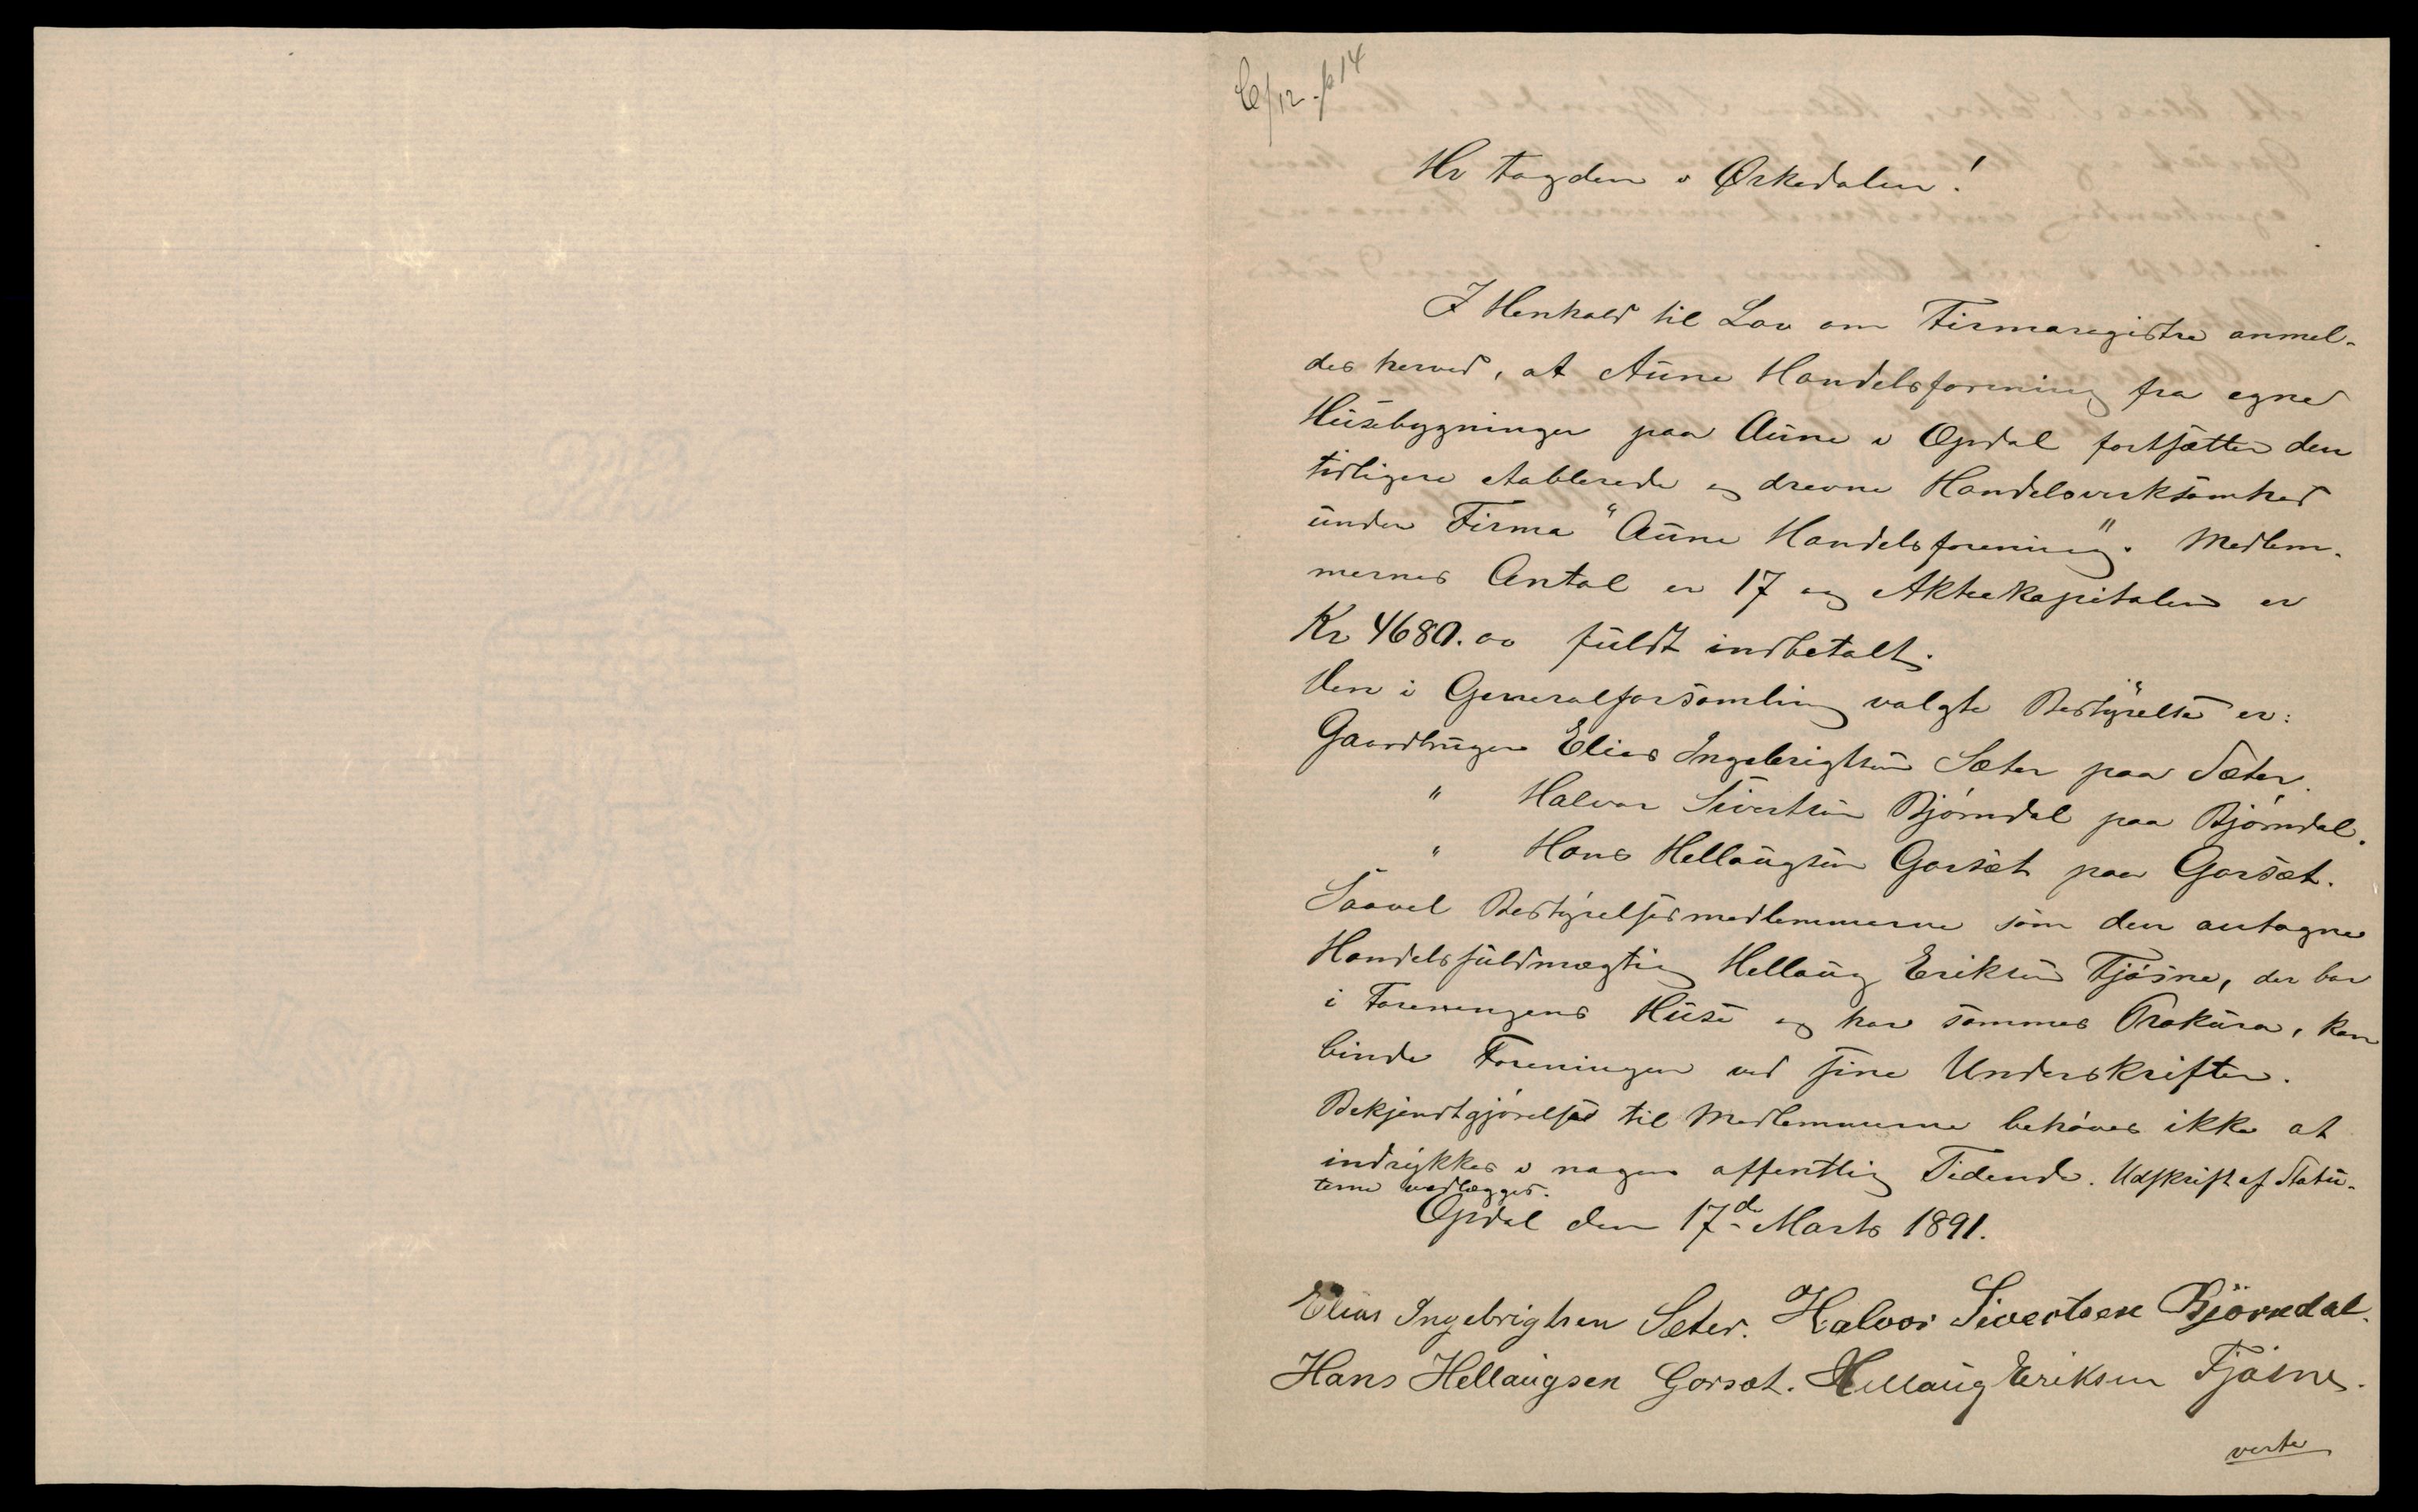 6/12. p 14
Hr Fogden i Ørkedalen!
I Henhold til Lov om Firmaregistre anmel-
des herved, at Aune Handelsforening fra egne
Husebygninger paa Aune i Opdal fortsætter den
tidligere etablerede og drevne Handelsvirksomhed
under Firma "Aune Handelsforening". Medlem-
mernes Antal er 17 og Aktiekapitalen er
Kr 4680.00 fuldt indbetalt.
Den i Generalforsamling valgte Bestyrelse er:
Gaardbruger Elias Ingebrigtsen Sæter paa Sæter.
" Halvor Sivertsen Bjørndal paa Bjørndal.
" Hans Hellaugsen Gorsæt paa Gorsæt.
Saavel Bestyrelsesmedlemmerne som den antagne
Handelsfuldmægtig Hellaug Eriksen Fjøsne, der bor
i Foreningens Huse og har sammes Prokura, kan
binde Foreningen ved sine Underskrifter.
Bekjendtgjørelser til Medlemmerne behøves ikke at
indrykkes i nogen offentlig Tidende. Udskrift af Statu-
terne vedlægges.
Opdal den 17de Marts 1891.
Elias Ingebrigtsen Sæter. Halvor Sivertsen Bjørndal.
Hans Hellaugsen Gorsæt. Hellaug Eriksen Fjøsne.
verte